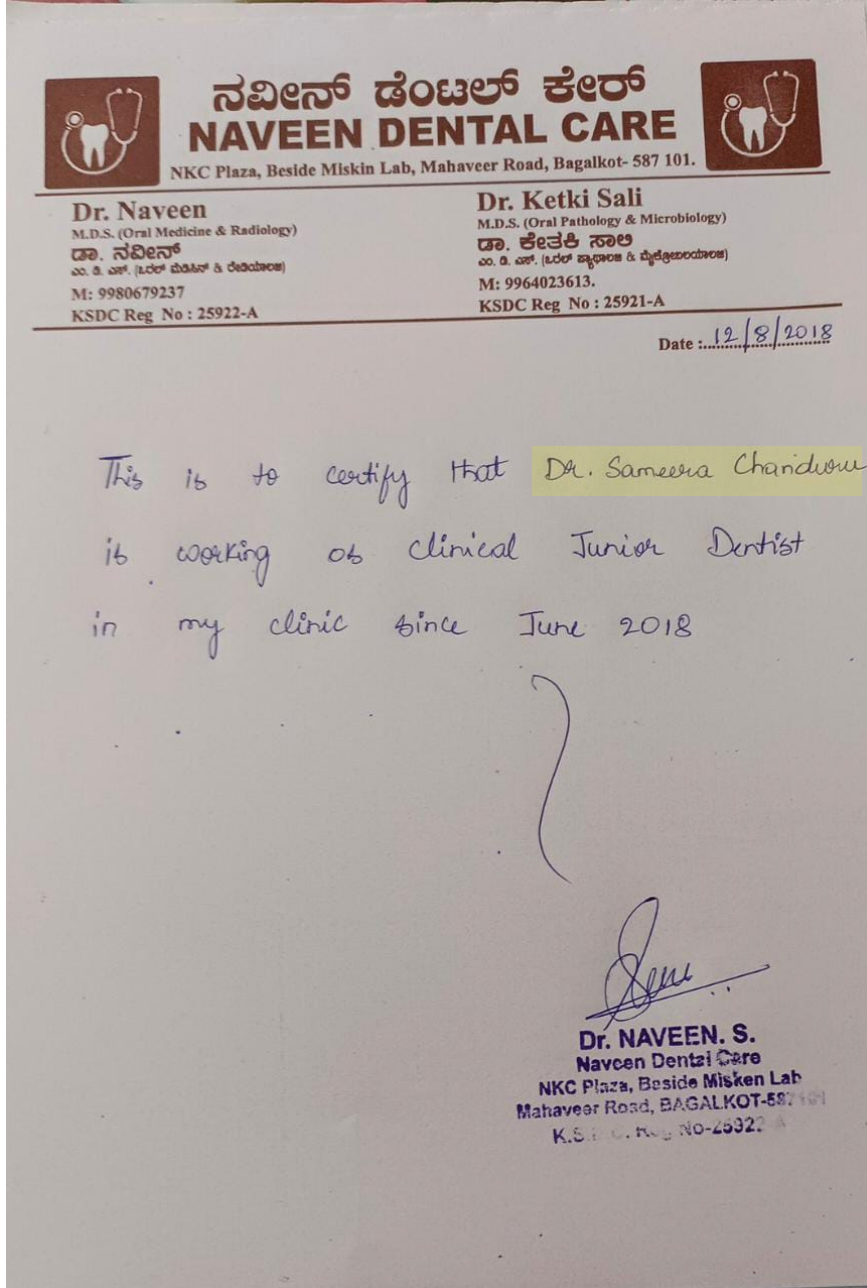 ನವೀನ್ ಡೆಂಟಲ್ ಕೇರ್
NAVEEN DENTAL CARE
NKC Plaza, Beside Miskin Lab, Mahaveer Road, Bagalkot- 587 101.
Dr. Naveen
M.D.S. (Oral Medicine & Radiology)
ಡಾ. ನವೀನ್
ಎಂ. ಡಿ. ಎಸ್. (ಓರಲ್ ಮೆಡಿಸಿನ್ & ರೇಡಿಯಾಲಜಿ)
M: 9980679237
KSDC Reg No : 25922-A
Dr. Ketki Sali
M.D.S. (Oral Pathology & Microbiology)
ಡಾ. ಕೇತಕಿ ಸಾಲಿ
ಎಂ. ಡಿ. ಎಸ್. (ಓರಲ್ ಪ್ಯಾಥಾಲಜಿ & ಮೈಕ್ರೋಬಯಾಲಜಿ)
M: 9964023613.
KSDC Reg No : 25921-A
Date : 12/8/2018
This is to certify that Dr. Sameera
is working as clinical Junior Dentist
in my clinic since June 2018
Dr. NAVEEN. S.
Naveen Dental Care
NKC Plaza, Beside Misken Lab
Mahaveer Road, BAGALKOT-587101
Reg No-25922-A